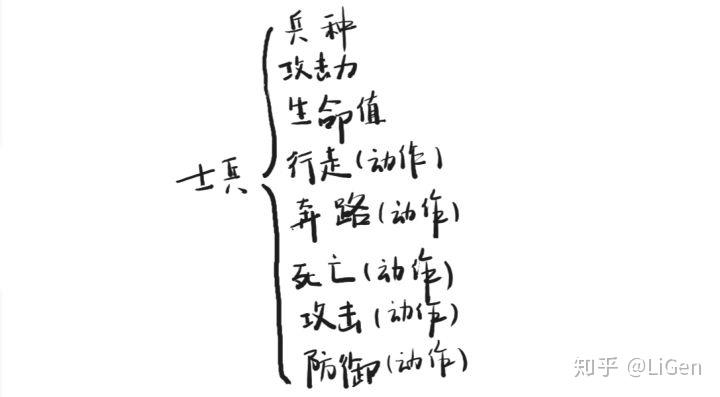 兵种
攻击力
生命值
行走(动作)
士兵
奔路(动作)
死亡(动作)
攻击(动作)
防御(动作)
知乎 @LiGen